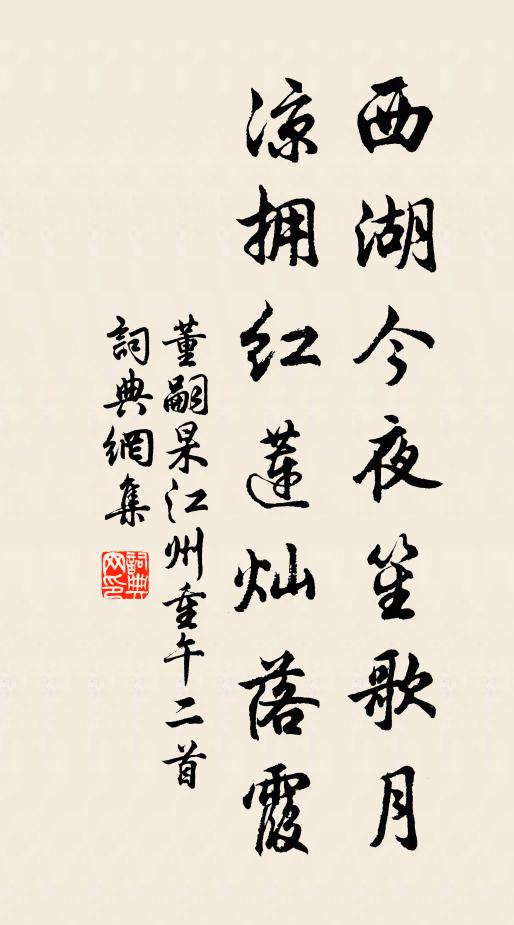 西湖今夜笙歌月
凉拥红莲灿落霞
董嗣杲江州重午二首
詞典網集
詞典网印